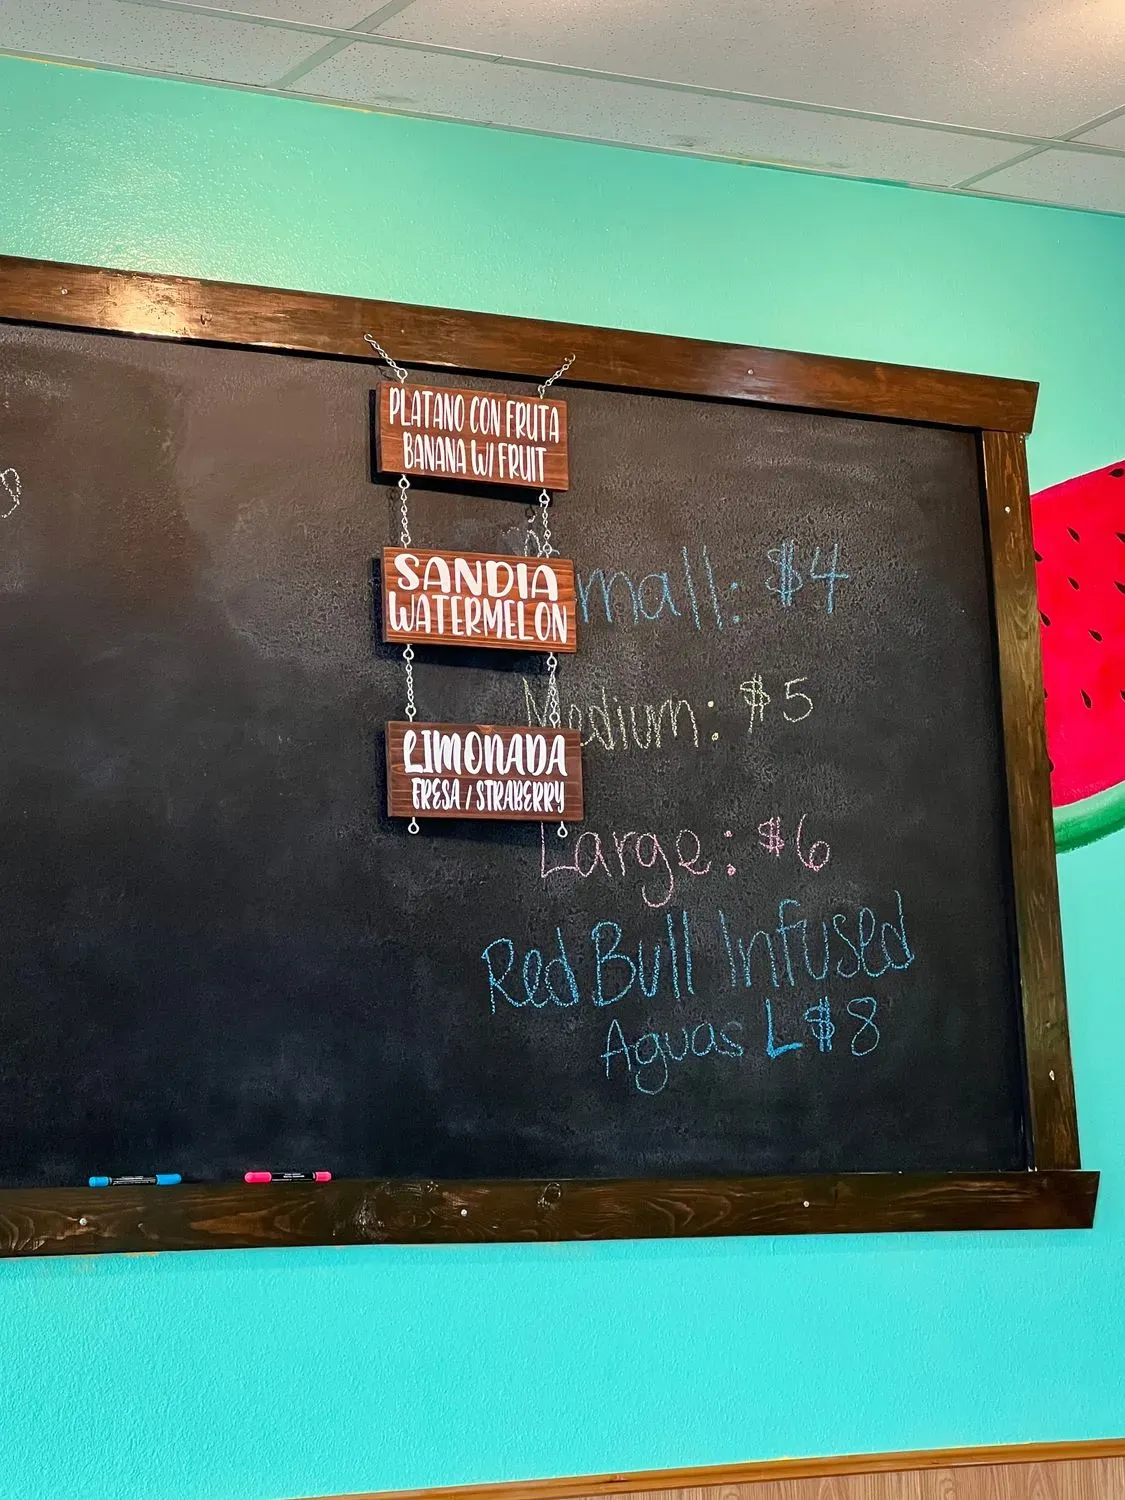 PLATANO CON FRUTA
BANANA W/ FRUIT
SANDIA
WATERMELON
LIMONADA
FRESA / STRABERRY
Small: $4
Medium: $5
Large: $6
Red Bull Infused
Aguas L $8